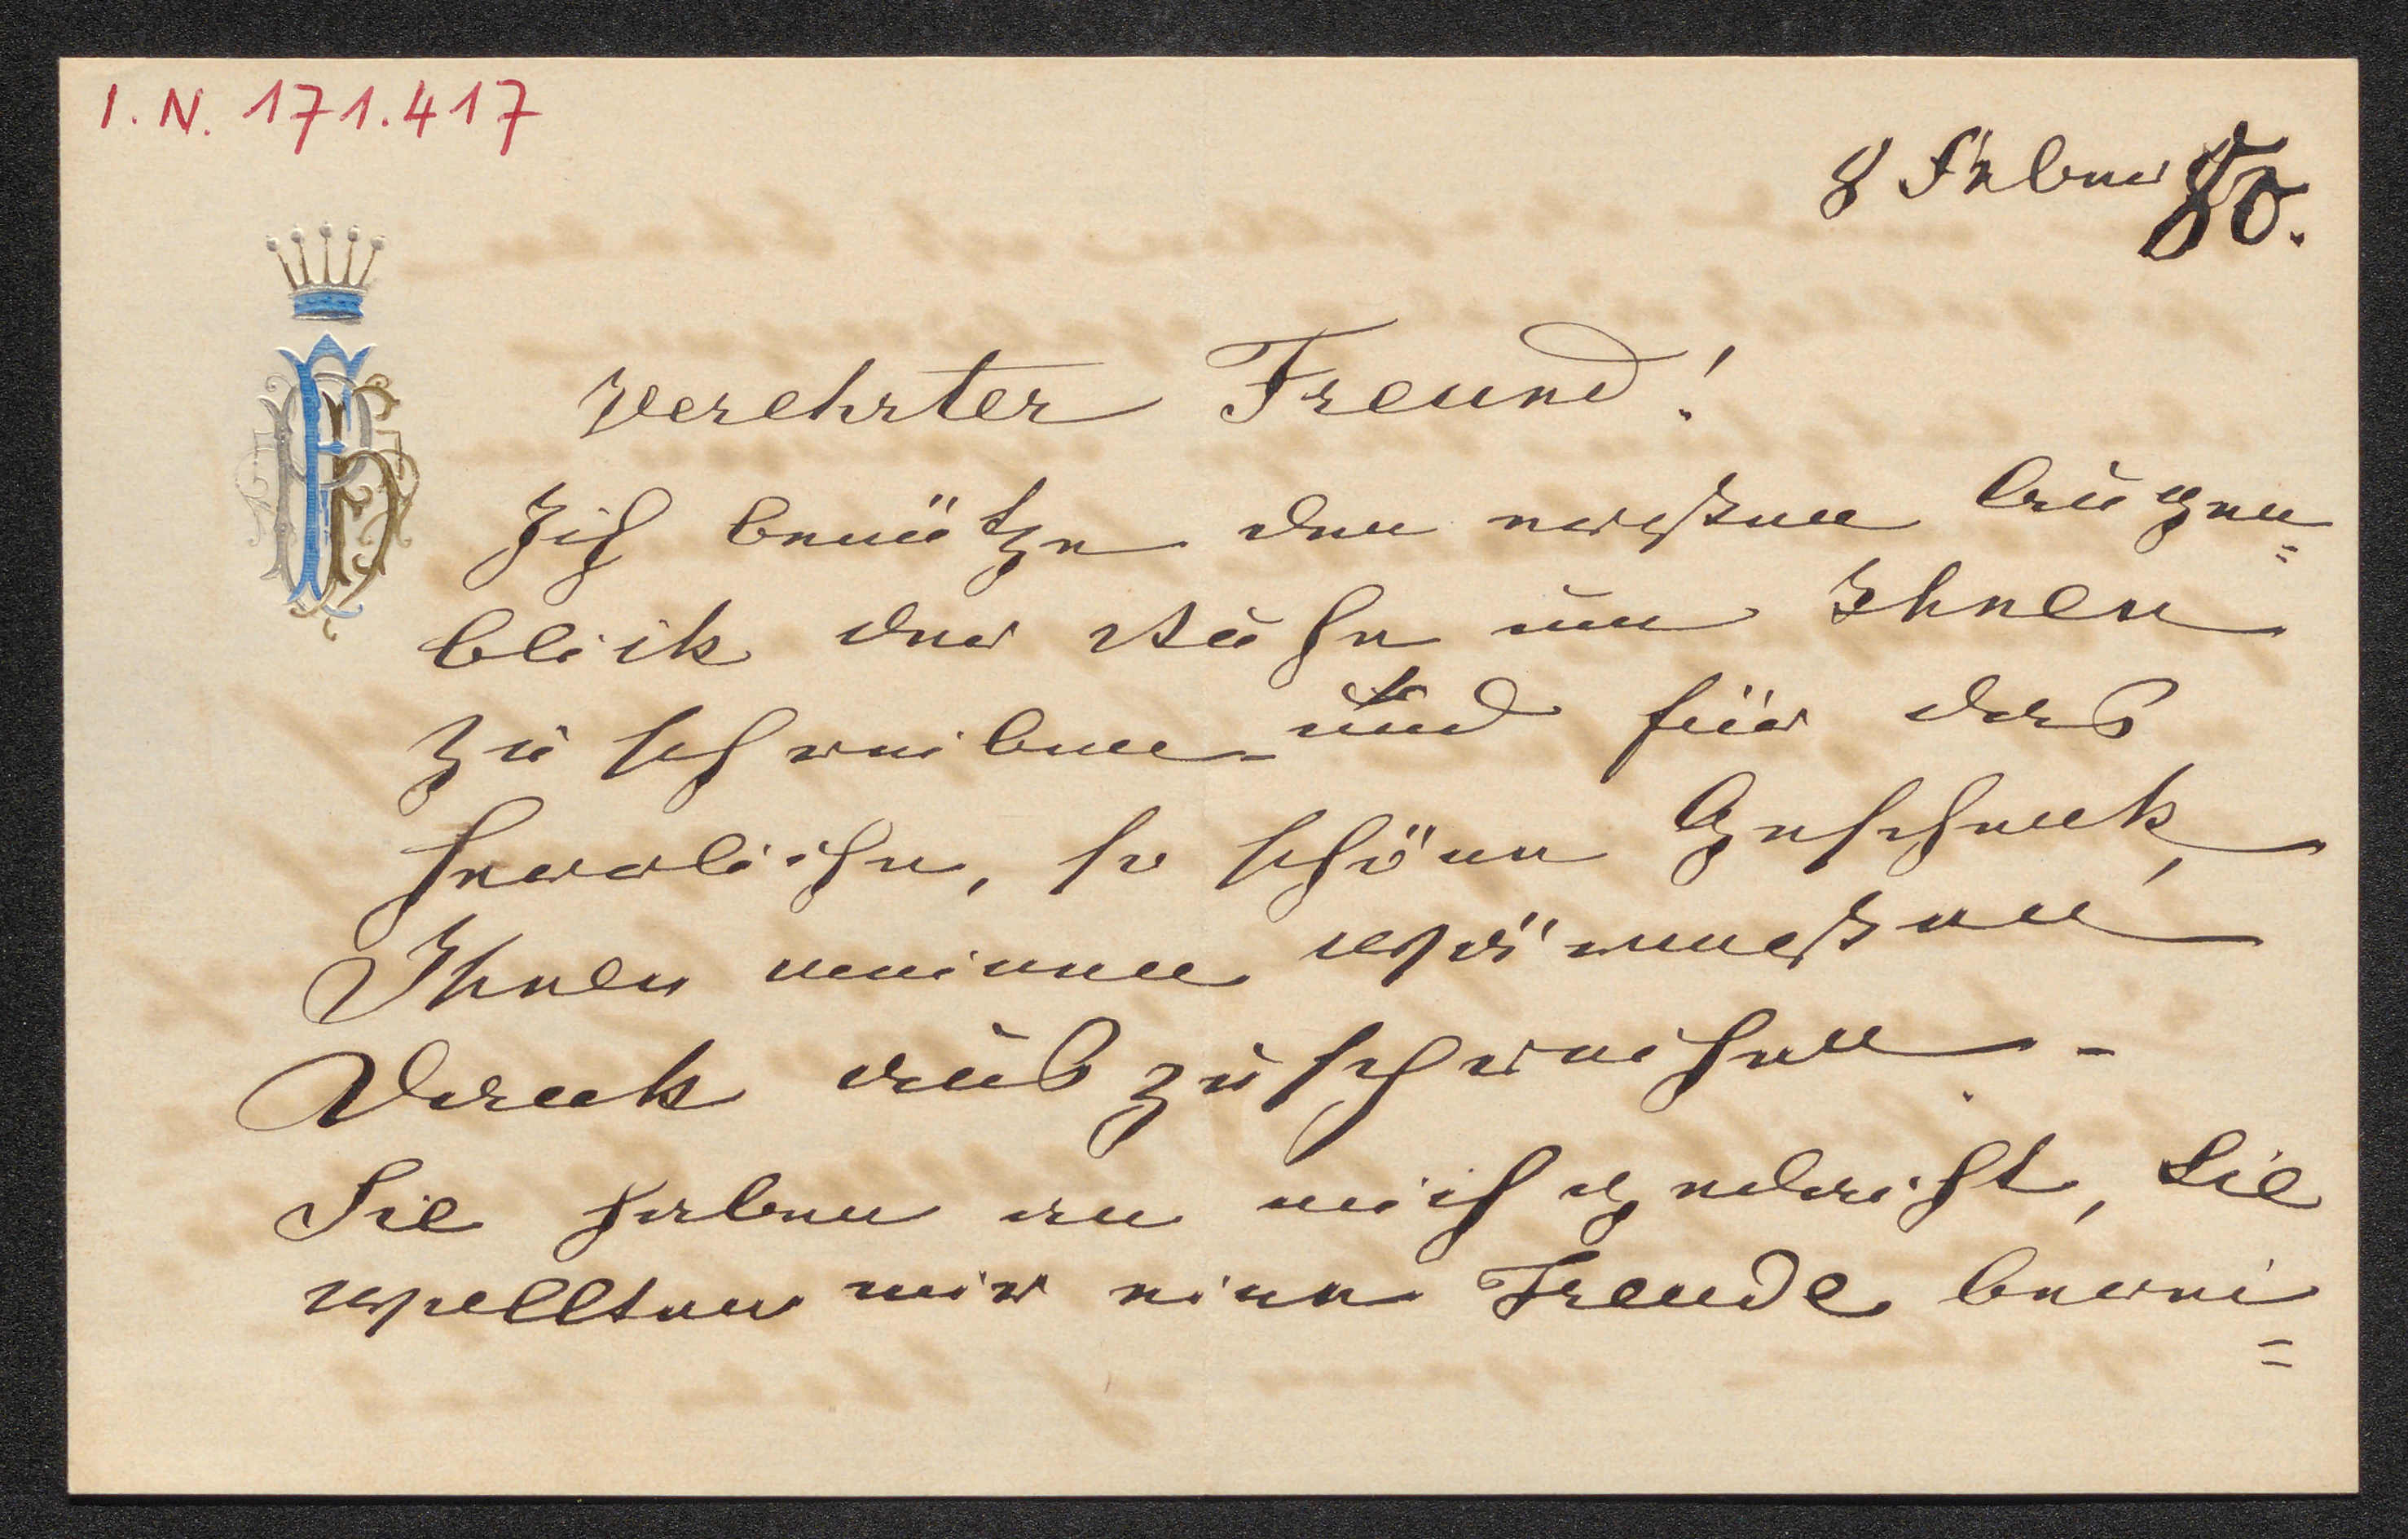 I. N. 171.417
8 Feber 80.
Verehrter Freund!
Ich benütze den ersten Augen=
blick der Ruhe um Ihnen
zu schreiben und für das
herrliche, so schöne Geschenk,
Ihnen meinen wärmsten
Dank auszusprechen.-
Sie haben an mich gedacht, Sie
wollten mir eine Freude berei
=